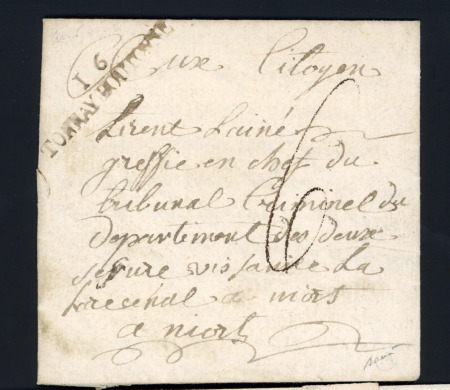 16
TONNAY BOUTONNE
aux Citoyen
Lirent Lainé
greffie en chef du
tribunal Criminel du
departement des deux
sevure vis la
6
a niort
a niort